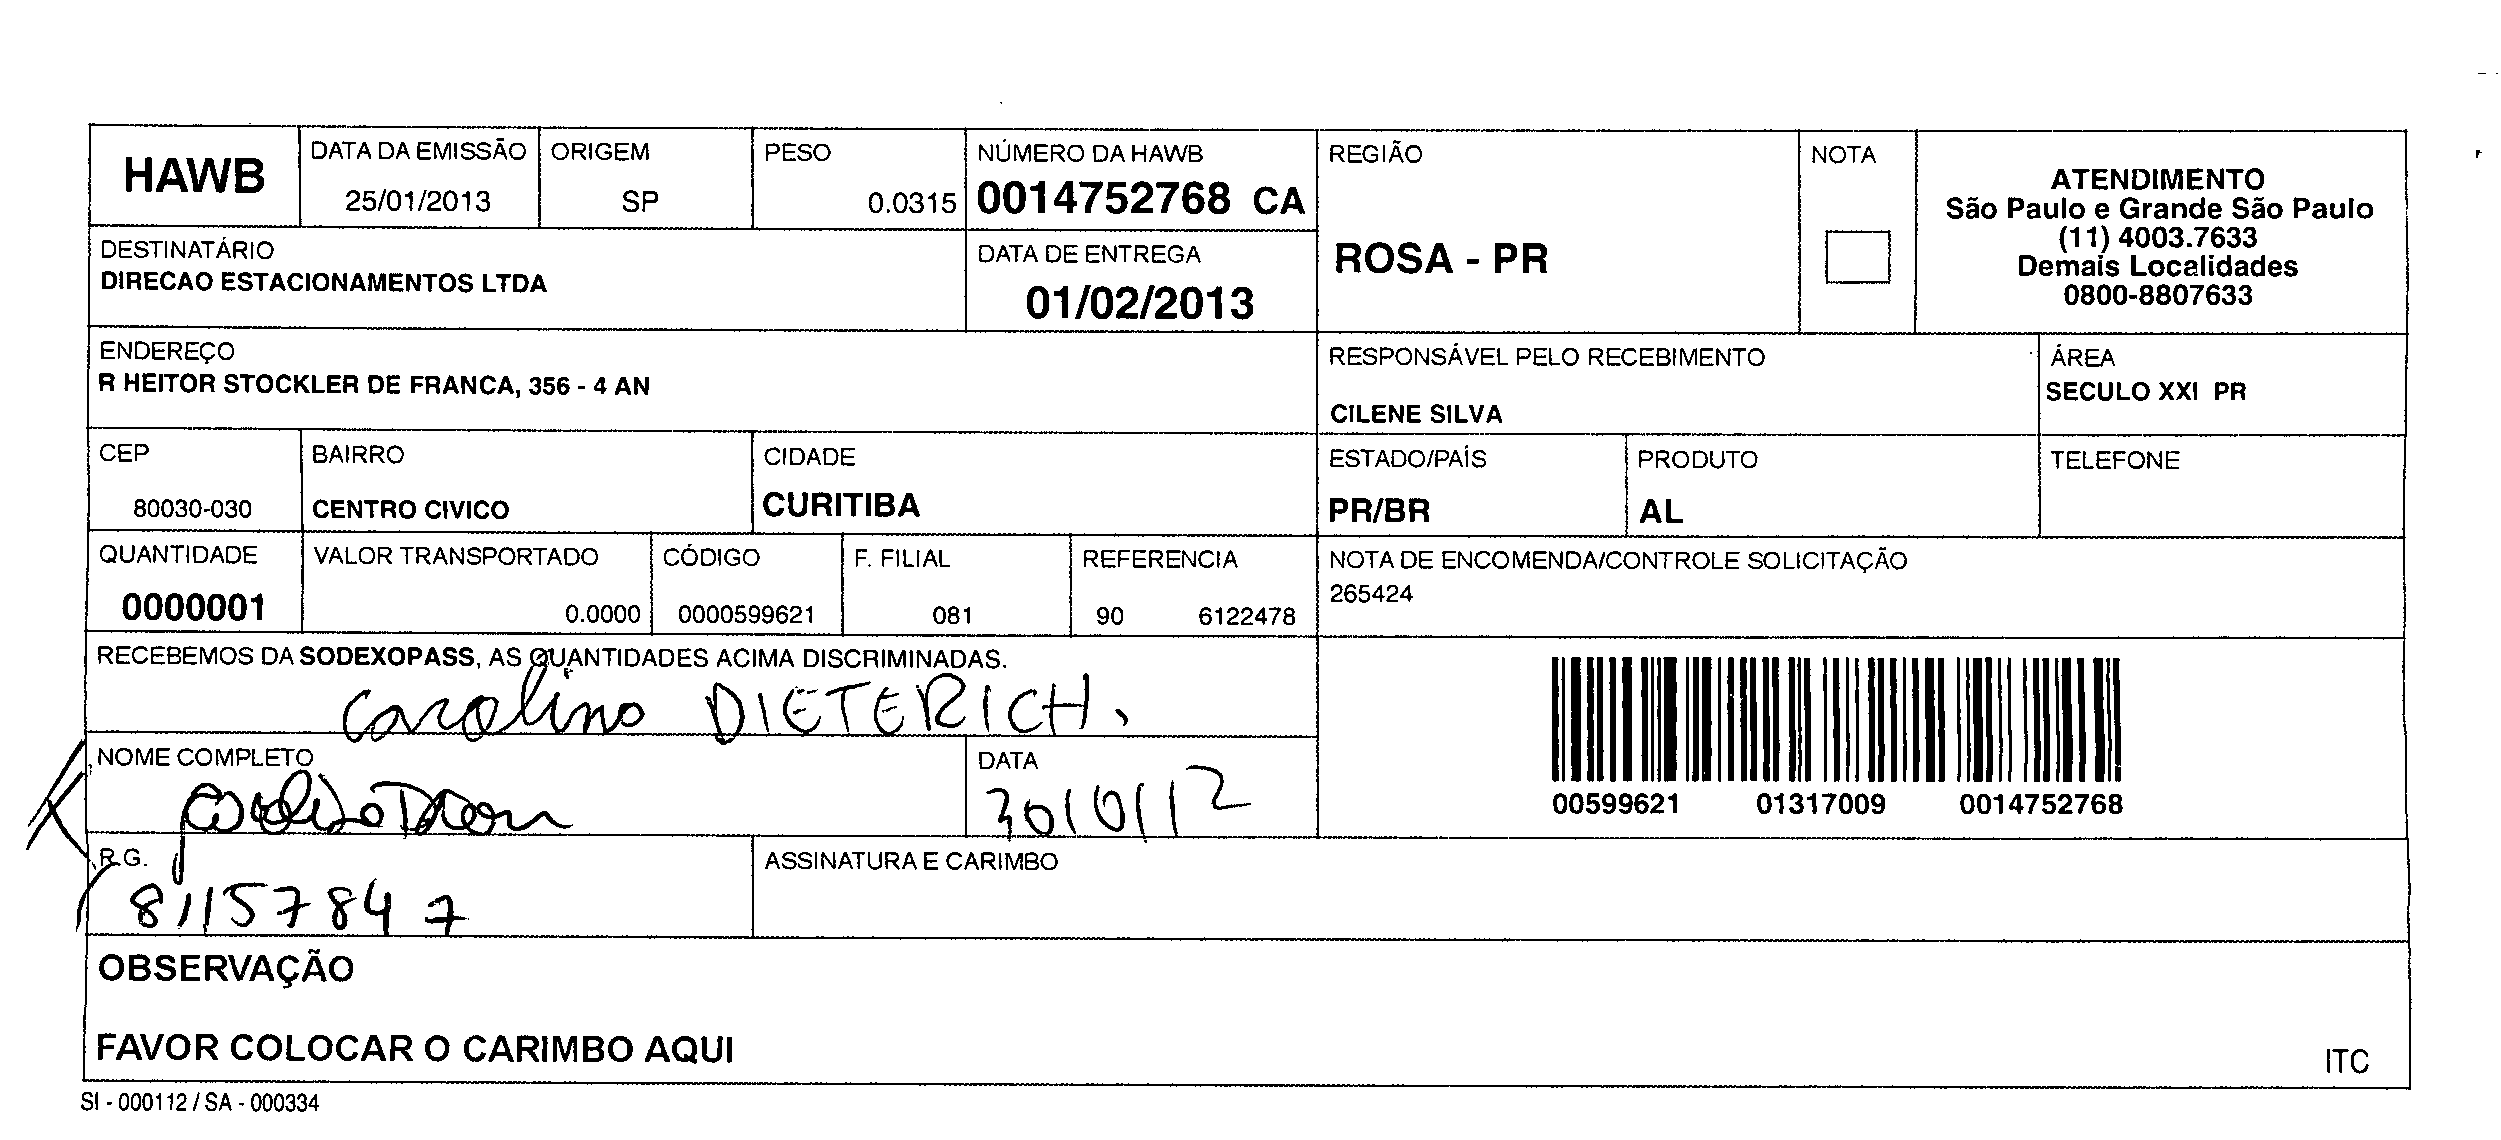 HAWB
DATA DA EMISSÃO
25/01/2013
ORIGEM
SP
PESO
0.0315
NÚMERO DA HAWB
0014752768 CA
REGIÃO
ROSA - PR
NOTA
ATENDIMENTO
São Paulo e Grande São Paulo
(11) 4003.7633
Demais Localidades
0800-8807633
DESTINATÁRIO
DIRECAO ESTACIONAMENTOS LTDA
DATA DE ENTREGA
01/02/2013
ENDEREÇO
R HEITOR STOCKLER DE FRANCA, 356 - 4 AN
RESPONSÁVEL PELO RECEBIMENTO
CILENE SILVA
ÁREA
SECULO XXI PR
CEP
80030-030
BAIRRO
CENTRO CIVICO
CIDADE
CURITIBA
ESTADO/PAÍS
PR/BR
PRODUTO
AL
TELEFONE
QUANTIDADE
0000001
VALOR TRANSPORTADO
0.0000
CÓDIGO
0000599621
F. FILIAL
081
REFERENCIA
90 6122478
NOTA DE ENCOMENDA/CONTROLE SOLICITAÇÃO
265424
RECEBEMOS DA SODEXOPASS, AS QUANTIDADES ACIMA DISCRIMINADAS.
Carolina DIETERICH.
NOME COMPLETO
DATA
30/01/12
00599621 01317009 0014752768
R.G.
81157847
ASSINATURA E CARIMBO
OBSERVAÇÃO
FAVOR COLOCAR O CARIMBO AQUI
ITC
SI - 000112 / SA - 000334